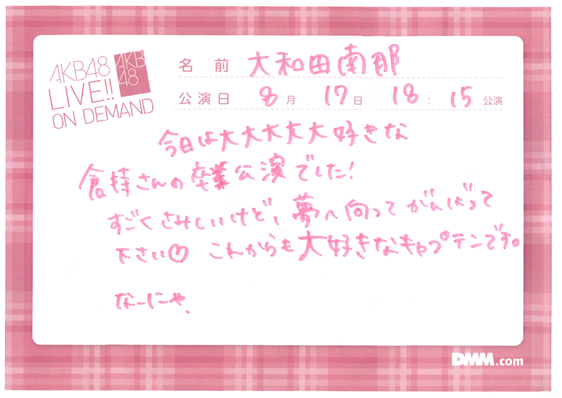 AKB48
LIVE!!
ON DEMAND
AKB
48
名前 大和田南那
公演日 8月 17日 18:15公演
今日は大大大大大好きな
倉持さんの卒業公演でした!
すごくさみしいけど、夢へ向ってがんばって
下さい♡ これからも大好きなキャプテンです。
なーにゃ、
DMM.com